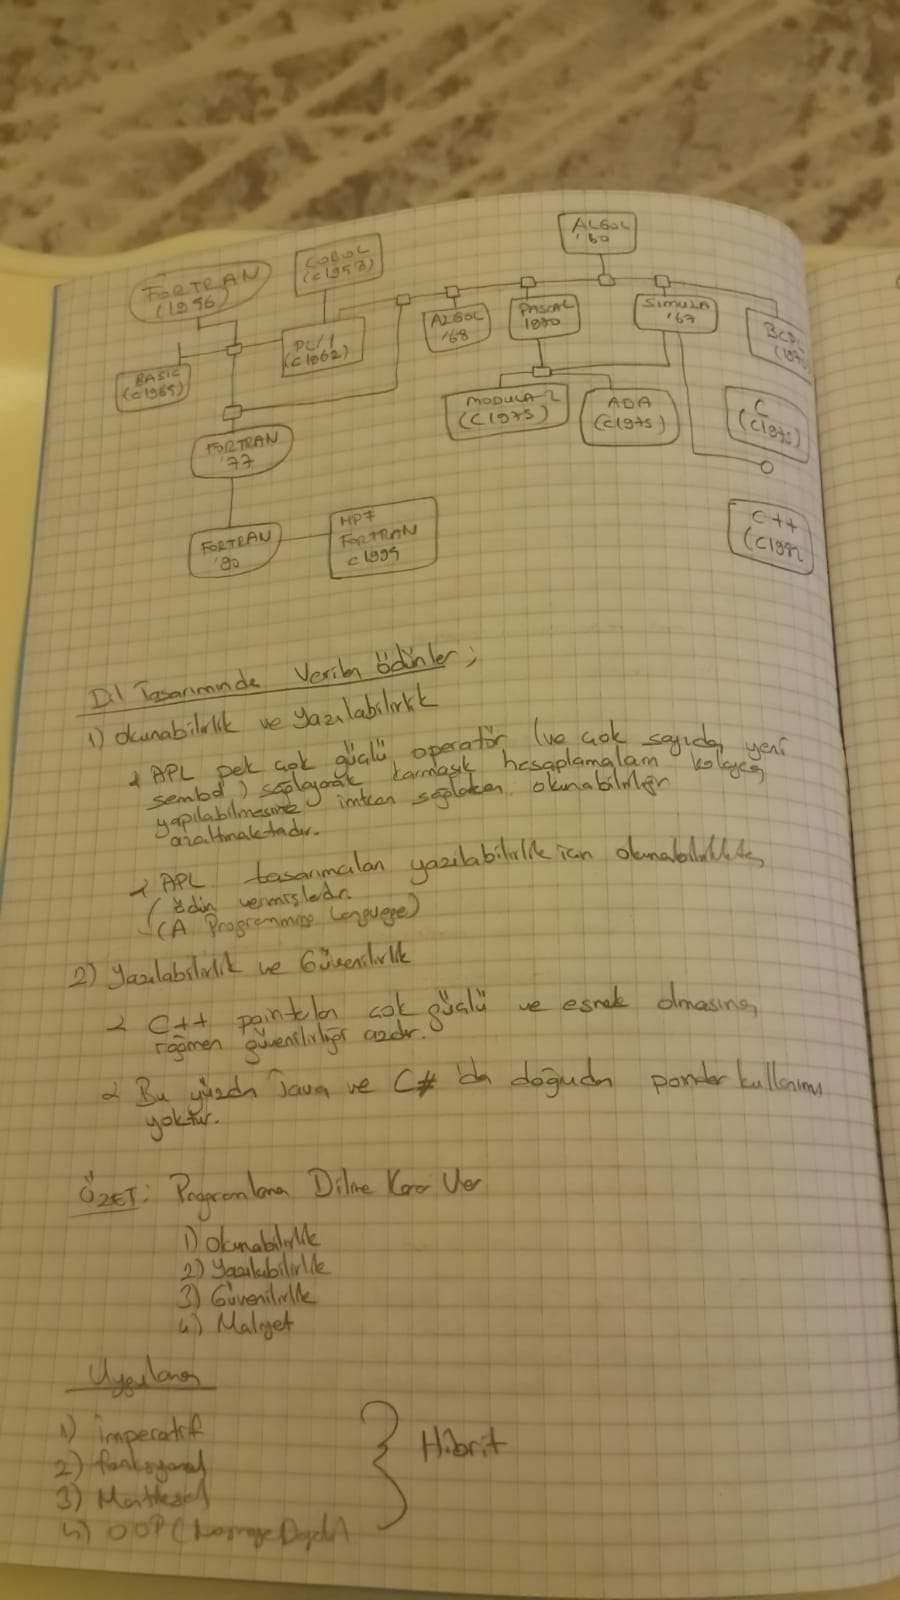 ALGOL
'60
COBOL
(c1958)
FORTRAN
(1956)
ALGOL
'68
PASCAL
1970
SIMULA
'67
PL/1
(c1962)
BASIC
(c1965)
MODULA-2
(C1975)
ADA
(c1975)
C
FORTRAN
'77
C++
FORTRAN
'90
FORTRAN
c1995
Dil Tasarımında Verilen Ödünler;
1) Okunabilirlik ve Yazılabilirlik
APL pek çok güçlü operatör (ve çok sayıda yeni
sembol) sağlayarak karmaşık hesaplamaların kolayca
yapılabilmesine imkan sağlarken okunabilirliği
azaltmaktadır.
APL tasarımcıları yazılabilirlik için okunabilirlikten
ödün vermişlerdir.
(A Programming Language)
2) Yazılabilirlik ve Güvenilirlik
C++ pointerları çok güçlü ve esnek olmasına
rağmen güvenilirliği azdır.
Bu yüzden Java ve C# 'da doğrudan pointer kullanımı
yoktur.
ÖZET: Programlama Diline Karar Ver
1) Okunabilirlik
2) Yazılabilirlik
3) Güvenilirlik
4) Maliyet
1) imperatif
2) fonksiyonel
3) Mantıksal
4) OOP
Hibrit